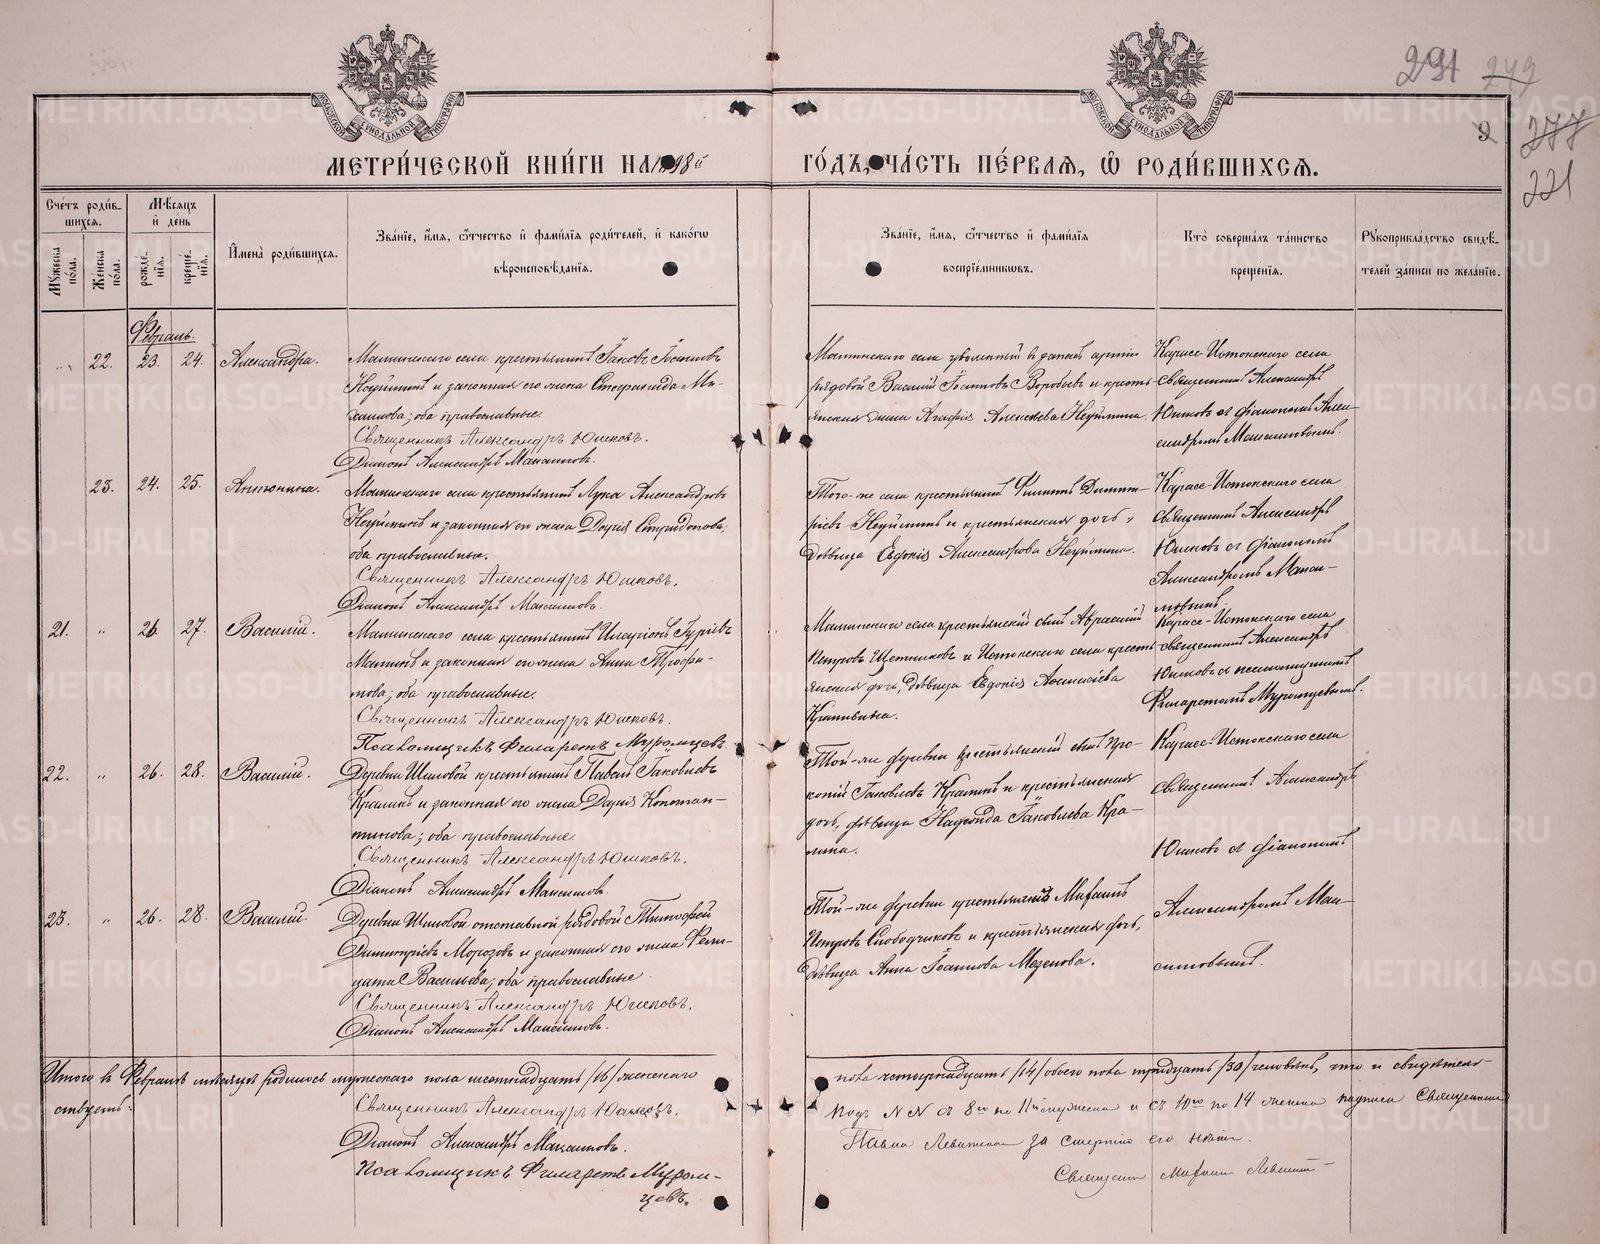 291 249
9 277
221
МОСКОВСКОЙ СѴНОДАЛЬНОЙ ТИПОГРАФІИ
МОСКОВСКОЙ СѴНОДАЛЬНОЙ ТИПОГРАФІИ
МЕТРИ́ЧЕСКОЙ КНИ́ГИ НА 1898й ГО́ДЪ, ЧА́СТЬ ПЕ́РВАЯ, Ѽ РОДИ́ВШИХСЯ.
Сче́тъ роди́в-
шихся.
Мꙋжеска по́ла.
Же́нска по́ла.
Мѣ́сяцъ и҆ де́нь
рожде́-
нїя.
креще́-
нїя.
И҆мена̀ роди́вшихся.
Зва́нїе, и҆́мя, ѻ҆́тчество и҆ фами́лїя роди́телей, и҆ како́гѡ
вѣроисповѣ́данїя.
Зва́нїе, и҆́мя, ѻ҆́тчество и҆ фами́лїя
воспрїе́мникѡвъ.
Кто̀ соверша́лъ та́инство
креще́нїя.
Рꙋкоприкла́дство свидѣ́-
телей за́писи по жела́нїю.
Февраль.
" 22. 23. 24. Александра.
Маминскаго села крестьянинъ Іаковъ Іоанновъ
Неуйминъ и законная его жена Стефанида Ми-
хаилова; оба православные.
Священникъ Александръ Юшковъ.
Діаконъ Александръ Максимовъ.
Маминскаго села уволенный въ запасъ арміи
рядовой Василій Іоанновъ Воробьевъ и кресть-
янская жена Агафія Алексѣева Неуймина.
Карасье-Истокскаго села
Священникъ Александръ
Юшковъ съ діакономъ Алек-
сандромъ Максимовымъ.
23. 24. 25. Антонина.
Маминскаго села крестьянинъ Лука Александровъ
Неуйминъ и законная его жена Дарія Спиридонова;
оба православные.
Священникъ Александръ Юшковъ.
Діаконъ Александръ Максимовъ.
Того-же села крестьянинъ Филиппъ Димит-
ріевъ Неуйминъ и крестьянская дочь,
дѣвица Евдокія Александрова Неуймина.
Карасье-Истокскаго села
Священникъ Александръ
Юшковъ съ діакономъ
Александромъ Макси-
мовымъ.
21. " 26. 27. Василій.
Маминскаго села крестьянинъ Иларіонъ Гуріевъ
Маминъ и законная его жена Анна Трофи-
мова; оба православные.
Священникъ Александръ Юшковъ.
Псаломщикъ Филаретъ Муромцевъ.
Маминскаго села крестьянскій сынъ
Петровъ Щетниковъ и Истокскаго села кресть-
янская дочь, дѣвица Евдокія
Карасье-Истокскаго села
священникъ Александръ
Юшковъ съ псаломщикомъ
Филаретомъ Муромцевымъ.
22. " 26. 28. Василій.
Деревни Шиловой крестьянинъ Павелъ Іаковлевъ
Кралинъ и законная его жена Дарія Констан-
тинова; оба православные
Священникъ Александръ Юшковъ.
Діаконъ Александръ Максимовъ.
Той-же деревни крестьянскій сынъ Про-
копій Іаковлевъ Кралинъ и крестьянская
дочь, дѣвица Іаковлева Кра-
лина.
Карасье-Истокскаго села
священникъ Александръ
Юшковъ съ діакономъ
Александромъ Мак-
симовымъ.
23. " 26. 28. Василій.
Деревни Шиловой отставной рядовой Тимофей
Димитріевъ Морозовъ и законная его жена Фели-
цата Васильева; оба православные
Священникъ Александръ Юшковъ.
Діаконъ Александръ Максимовъ.
Той-же деревни крестьянинъ Михаилъ
Петровъ Слободчиковъ и крестьянская дочь,
дѣвица Анна Іоаннова Мезенова.
Итого въ Февралѣ мѣсяцѣ родилось мужескаго пола шестнадцать /16/ женскаго
пола четырнадцать /14/ обоего пола тридцать /30/ человѣкъ, что и свидѣтель-
ствуетъ:
Священникъ Александръ Юшковъ.
Діаконъ Александръ Максимовъ.
Псаломщикъ Филаретъ Муром-
цевъ.
Подъ NN съ 8го по 11й мужеска и съ 10го по 14 женска подписи Священника
Павла Левитскаго за смертію его нѣтъ.
Священникъ Михаилъ
METRIKI.GASO-URAL.RU